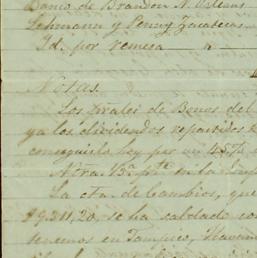 Banco de Brandon N. Orleans
Lehmann y Penny Zacatecas
Id. por remesa
Notas.
Los reales de Bonos del
ya los dividendos repartidos
conseguirla hoy por un 45%
Ntra. 13a. pte. en la
La cta. de Cambios, que
19.211,20. se ha saldado con
tenemos en Tampico, Havana